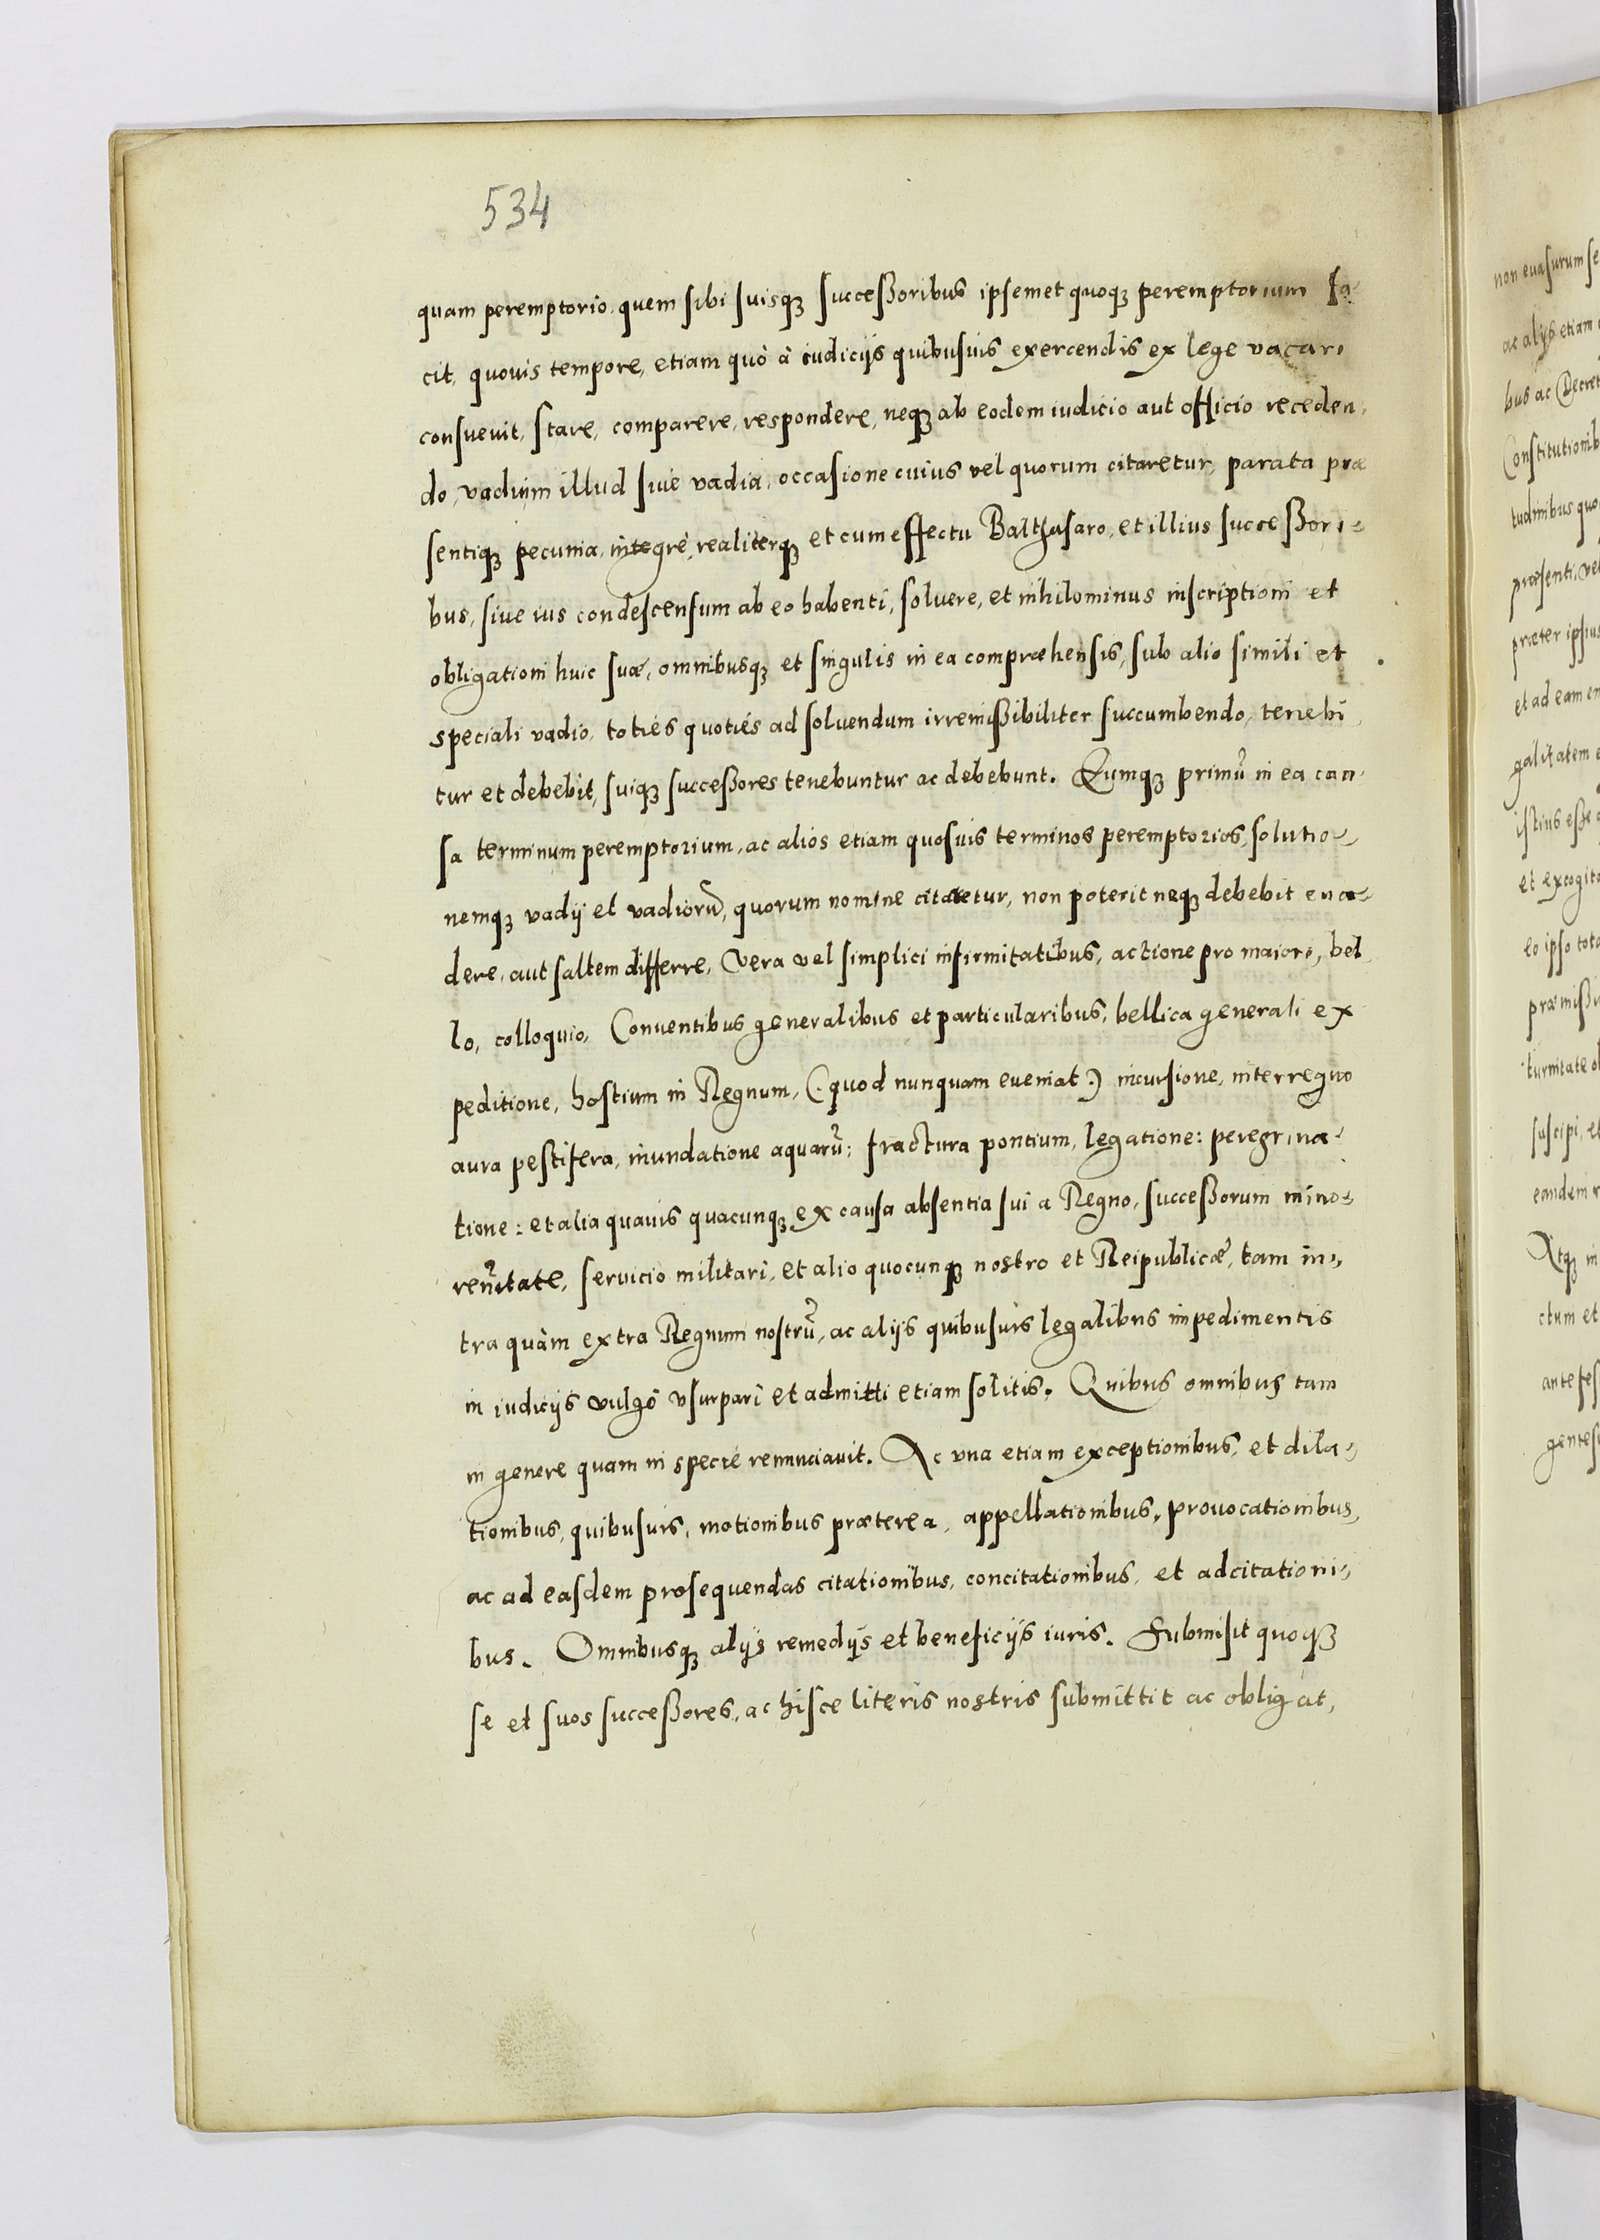 534
quam peremptorio, quem sibi suisq; successoribus ipsemet quoq; peremptorium fa-
cit, quovis tempore, etiam quò à iudicijs quibusuis exercendis ex lege vacari
consuevit, stare, comparere, respondere, neq; ab eodem iudicio aut officio receden,
do, vadium illud sive vadia, occasione cuius vel quorum citaretur, parata præ
sentiq; pecunia, integrè, realiterq; et cum effectu Balthasaro, et illius successori-
bus, sive ius condescensum ab eo habenti, soluere, et nihilominus inscriptioni et
obligationi huic suæ, omnibusq; et singulis in ea compræhensis, sub alio simili et
speciali vadio, totiés quotiés ad soluendum irremissibiliter succumbendo, tenebi,
tur et debebit, suiq; successores tenebuntur ac debebunt. Eumq; primũ in ea cau,
sa terminum peremptorium, ac alios etiam quosuis terminos peremptorios, solutio-
nemq; vadij et vadiorũ, quorum nomine citaretur, non poterit neq; debebit eva-
dere, aut saltem differre, Vera vel simplici infirmitatibus, actione pro maiori, bel,
lo, colloquio, Conventibus generalibus et particularibus, bellica generali ex
peditione, hostium in Regnum, (: quod nunquam eveniat :) incursione, interregno
aura pestifera, inundatione aquarũ; fractura pontium, legatione: peregrina-
tione: et alia quavis quacunq; ex causa absentia sui a Regno, successorum mino-
rennitate, servicio militari, et alio quocunq; nostro et Reipublicæ, tam in-,
tra quàm extra Regnum nostrũ, ac alijs quibusuis legalibus impedimentis
in iudicijs vulgò vsurpari et admitti etiam solitis. Quibus omnibus tam
in genere quam in specie renunciavit. Ac vna etiam exceptionibus, et dila-,
tionibus, quibusuis, motionibus præterea, appellationibus, provocationibus,
ac ad easdem prosequendas citationibus, concitationibus, et adcitationi-,
bus. Omnibusq; alijs remedijs et beneficijs iuris. Submisit quoq;
se et suos successores, ac hisce literis nostris submittit ac obligat,
non evasurum se
ac alijs etiam
bus ac Decret
Constitutionib
tudinibus quo
præsenti, vel
præter ipsius
et ad eam
galitatem
istius esse
et excogita
eo ipso tota
præmissi
turnitate
suscipi, et
eandem
Atq; in
ctum et
ante fes
gentes